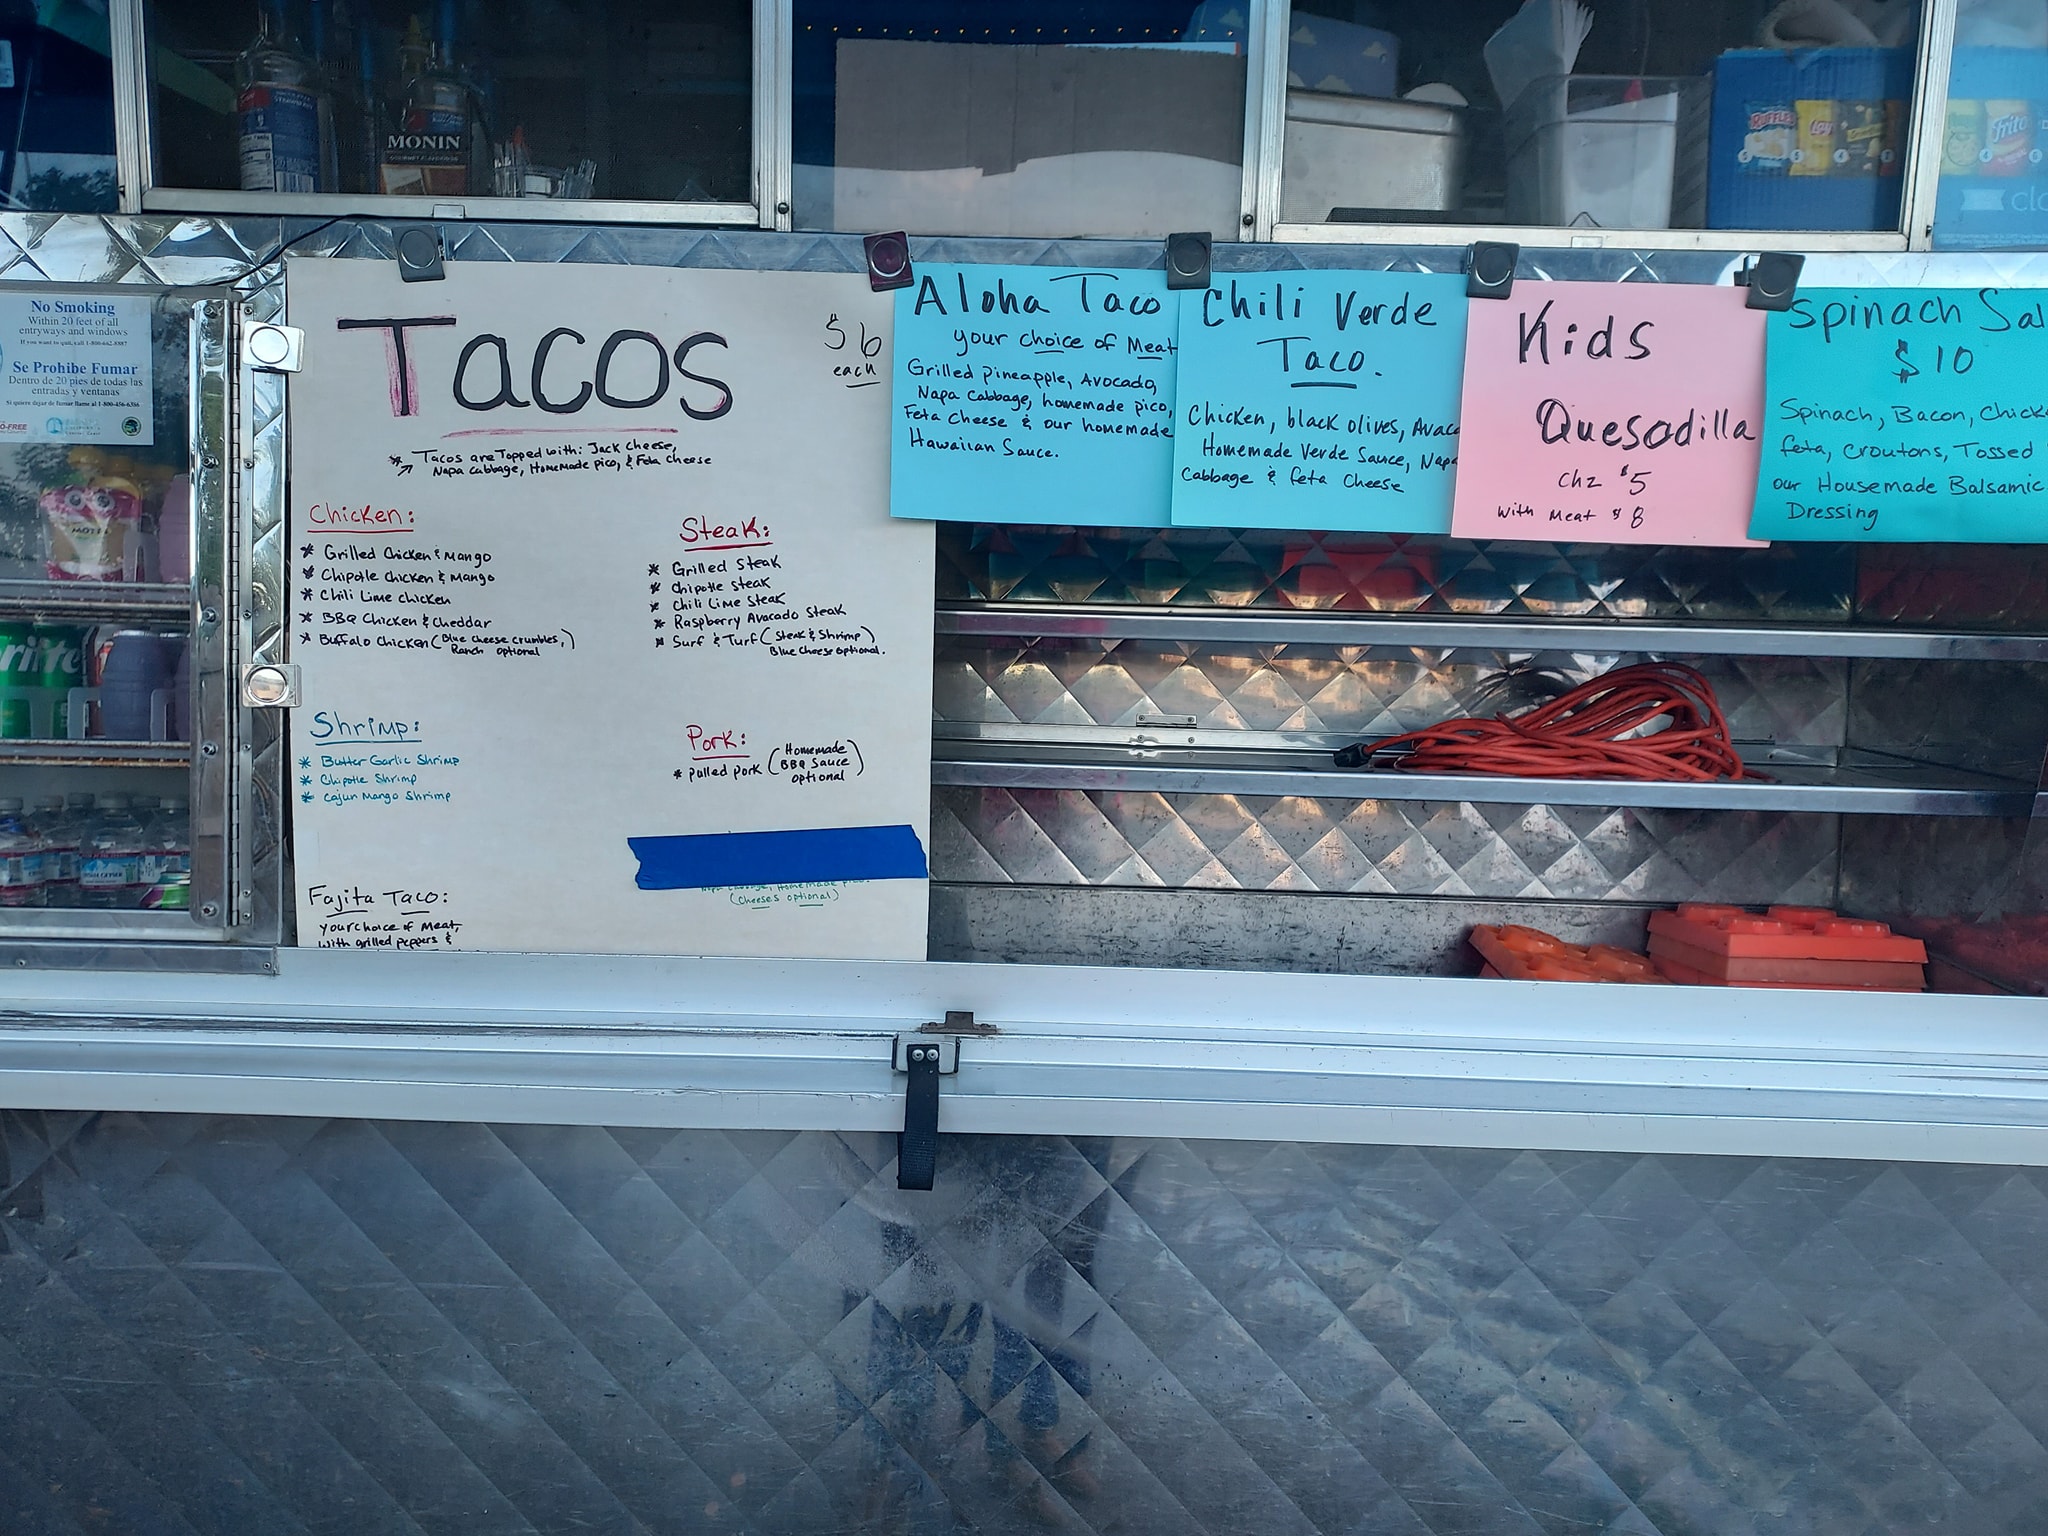 MONIN
GOURMET FLAVORINGS
RUFFLES
Lay's
Frito
clo
No Smoking
Within 20 feet of all
entryways and windows
If you want to quit, call 1-800-662-8887
Se Prohibe Fumar
Dentro de 20 pies de todas las
entradas y ventanas
Si quiere dejar de fumar llame al 1-800-456-6386
O-FREE
MOTT'S
rite
Tacos
$6
each
* Tacos are Topped with: Jack Cheese,
Napa Cabbage, Homemade pico, & Feta Cheese
Chicken:
* Grilled Chicken & Mango
* Chipotle Chicken & Mango
* Chili Lime Chicken
* BBQ Chicken & Cheddar
* Buffalo Chicken (Blue Cheese Crumbles,
Ranch optional)
Steak:
* Grilled Steak
* Chipotle Steak
* Chili Lime Steak
* Raspberry Avocado Steak
* Surf & Turf (Steak & Shrimp)
Blue Cheese optional.
Shrimp:
* Butter Garlic Shrimp
* Chipotle Shrimp
* Cajun Mango Shrimp
Pork:
* pulled pork (Homemade
BBQ Sauce
optional)
Napa Cabbage, Homemade pico.
(Cheeses optional)
Fajita Taco:
your choice of Meat,
with grilled peppers &
Aloha Taco
your choice of Meat
Grilled pineapple, Avocado,
Napa Cabbage, homemade pico,
Feta Cheese & our homemade
Hawaiian Sauce.
Chili Verde
Taco.
Chicken, black olives, Avaca
Homemade Verde Sauce, Napa
Cabbage & feta Cheese
Kids
Quesadilla
Chz $5
with Meat $8
Spinach Sal
$10
Spinach, Bacon, Chick
feta, Croutons, Tossed
our Housemade Balsamic
Dressing